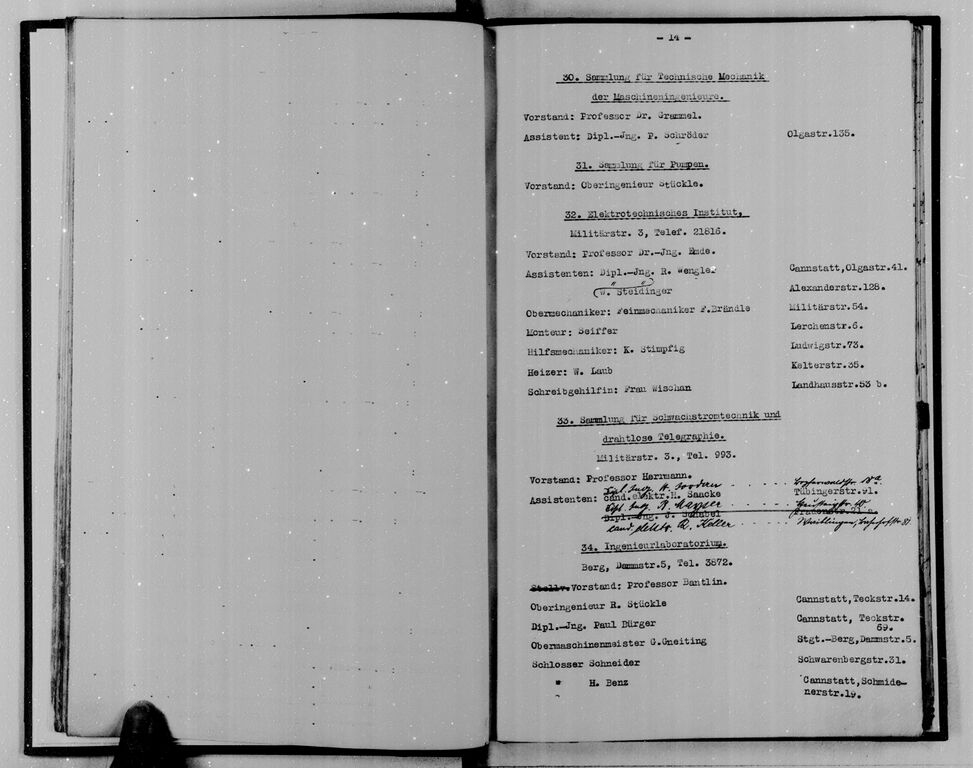 - 14 -
30. Sammlung für Technische Mechanik
der Maschineningenieure.
Vorstand: Professor Dr. Grammel.
Assistent: Dipl.-Jng. P. Schröder Olgastr.135.
31. Sammlung für Pumpen.
Vorstand: Oberingenieur Stückle.
32. Elektrotechnisches Institut,
Militärstr. 3, Telef. 21816.
Vorstand: Professor Dr.-Jng. Emde.
Assistenten: Dipl.-Jng. R. Wengler Cannstatt,Olgastr.41.
" "
W. Steidinger Alexanderstr.128.
Obermechaniker: Feinmechaniker F.Brändle Militärstr.54.
Monteur: Seiffer Lerchenstr.6.
Hilfsmechaniker: K. Stimpfig Ludwigstr.73.
Heizer: W. Laub Kelterstr.35.
Schreibgehilfin: Frau Wischan Landhausstr.53 b.
33. Sammlung für Schwachstromtechnik und
drahtlose Telegraphie.
Militärstr. 3., Tel. 993.
Vorstand: Professor Herrmann.
Dipl. Ing. H.
Assistenten: cand.elektr.H. Saacke Tübingerstr.91.
Dipl. Ing. R. Mayser
Dipl.-Jng. J. Schabel
cand. elektr. R. Keller Waiblingen,
34. Ingenieurlaboratorium.
Berg, Dammstr.5, Tel. 3872.
Stellv.Vorstand: Professor Bantlin.
Oberingenieur R. Stückle Cannstatt,Teckstr.14.
Dipl.-Jng. Paul Bürger Cannstatt, Teckstr.
69.
Obermaschinenmeister G.Gneiting Stgt.-Berg,Dammstr.5.
Schlosser Schneider Schwarenbergstr.31.
" H. Benz Cannstatt,Schmide-
nerstr.19.